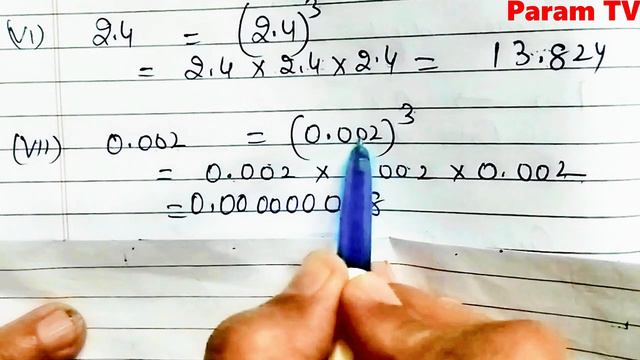 Param TV
(VI) 2.4 = (2.4)³
= 2.4 × 2.4 × 2.4 = 13.824
(VII) 0.002 = (0.002)³
= 0.002 × .002 × 0.002
= 0.0000000 8